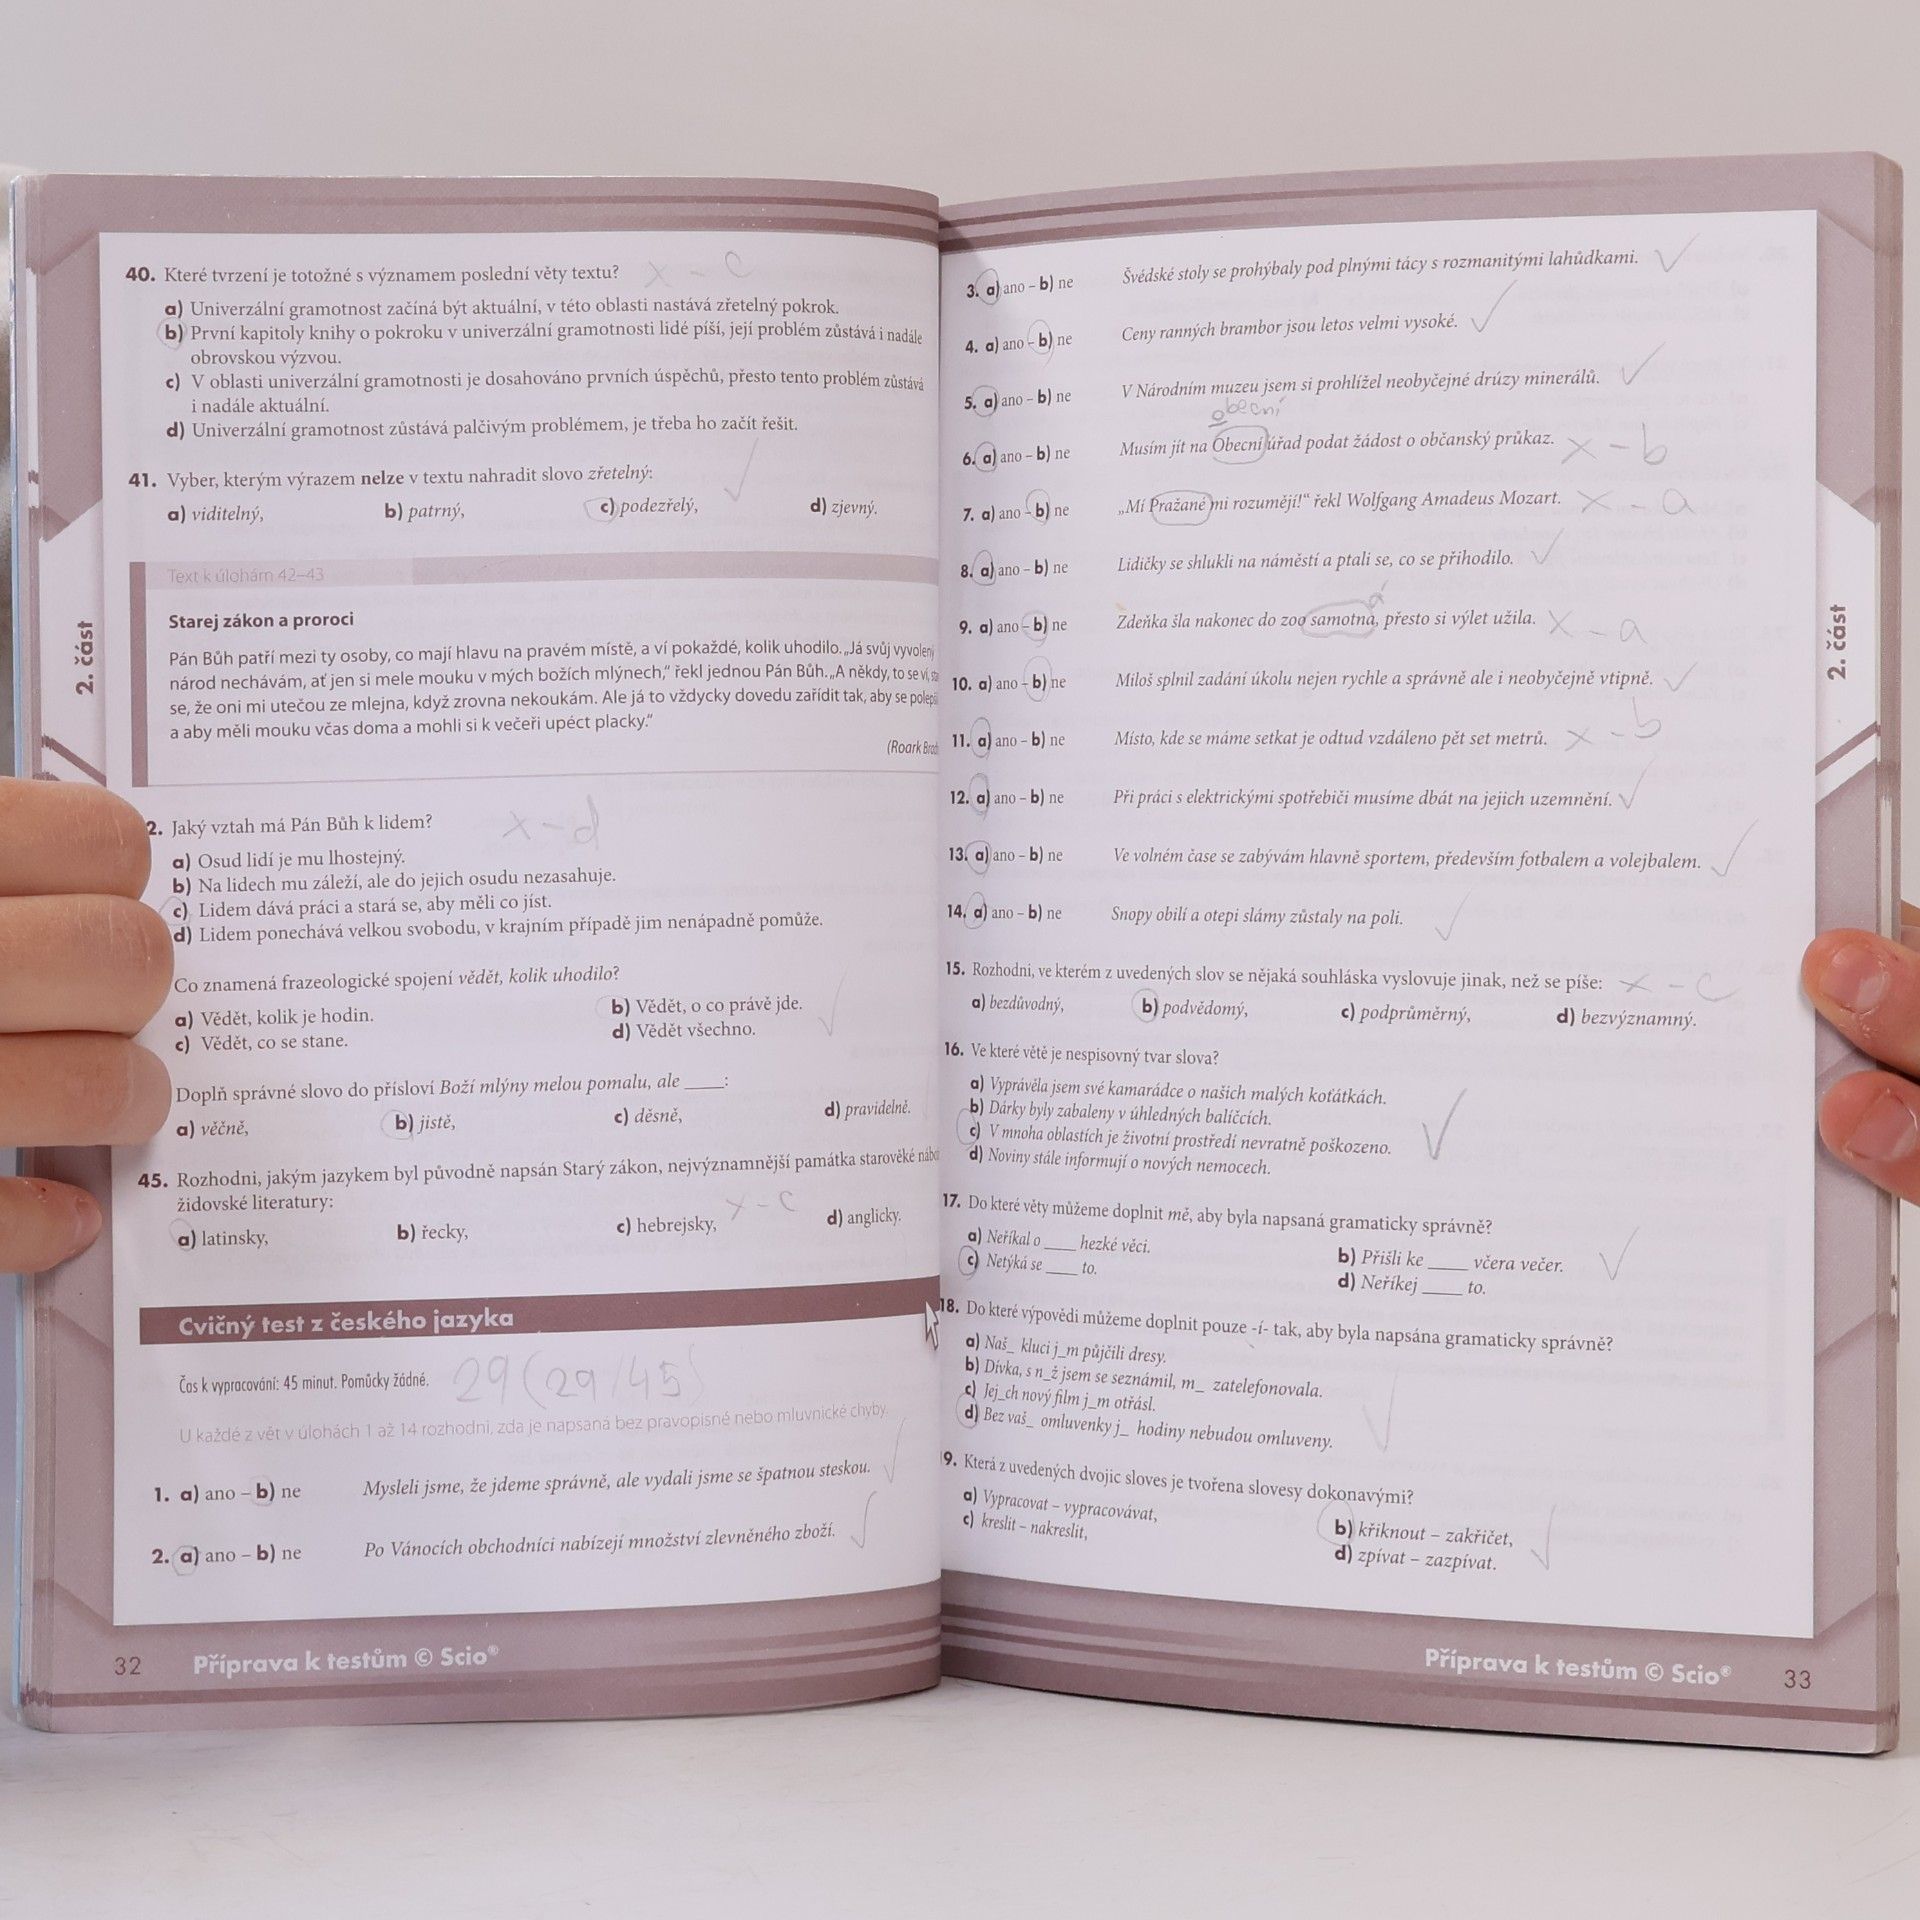 40. Které tvrzení je totožné s významem poslední věty textu? x - c
a) Univerzální gramotnost začíná být aktuální, v této oblasti nastává zřetelný pokrok.
b) První kapitoly knihy o pokroku v univerzální gramotnosti lidé píší, její problém zůstává i nadále
obrovskou výzvou.
c) V oblasti univerzální gramotnosti je dosahováno prvních úspěchů, přesto tento problém zůstává
i nadále aktuální.
d) Univerzální gramotnost zůstává palčivým problémem, je třeba ho začít řešit.
41. Vyber, kterým výrazem nelze v textu nahradit slovo zřetelný:
a) viditelný, b) patrný, c) podezřelý, d) zjevný.
Text k úlohám 42–43
2. část
Starej zákon a proroci
Pán Bůh patří mezi ty osoby, co mají hlavu na pravém místě, a ví pokaždé, kolik uhodilo. „Já svůj vyvolený
národ nechávám, ať jen si mele mouku v mých božích mlýnech,“ řekl jednou Pán Bůh. „A někdy, to se ví,
se, že oni mi utečou ze mlejna, když zrovna nekoukám. Ale já to vždycky dovedu zařídit tak, aby se
a aby měli mouku včas doma a mohli si k večeři upéct placky.“
(Roark
2. Jaký vztah má Pán Bůh k lidem? x - d
a) Osud lidí je mu lhostejný.
b) Na lidech mu záleží, ale do jejich osudu nezasahuje.
c) Lidem dává práci a stará se, aby měli co jíst.
d) Lidem ponechává velkou svobodu, v krajním případě jim nenápadně pomůže.
Co znamená frazeologické spojení vědět, kolik uhodilo?
a) Vědět, kolik je hodin. b) Vědět, o co právě jde.
c) Vědět, co se stane. d) Vědět všechno.
Doplň správné slovo do přísloví Boží mlýny melou pomalu, ale ____:
a) věčně, b) jistě, c) děsně, d) pravidelně.
45. Rozhodni, jakým jazykem byl původně napsán Starý zákon, nejvýznamnější památka starověké
židovské literatury: x - c
a) latinsky, b) řecky, c) hebrejsky, d) anglicky.
Cvičný test z českého jazyka
Čas k vypracování: 45 minut. Pomůcky žádné. 29 (29/45)
U každé z vět v úlohách 1 až 14 rozhodni, zda je napsaná bez pravopisné nebo mluvnické chyby.
1. a) ano – b) ne Mysleli jsme, že jdeme správně, ale vydali jsme se špatnou steskou.
2. a) ano – b) ne Po Vánocích obchodníci nabízejí množství zlevněného zboží.
32 Příprava k testům © Scio®
3. a) ano – b) ne Švédské stoly se prohýbaly pod plnými tácy s rozmanitými lahůdkami.
4. a) ano – b) ne Ceny ranných brambor jsou letos velmi vysoké.
5. a) ano – b) ne V Národním muzeu jsem si prohlížel neobyčejné drúzy minerálů.
obecní
6. a) ano – b) ne Musím jít na Obecní úřad podat žádost o občanský průkaz. x - b
7. a) ano – b) ne „Mí Pražané mi rozumějí!“ řekl Wolfgang Amadeus Mozart. x - a
8. a) ano – b) ne Lidičky se shlukli na náměstí a ptali se, co se přihodilo.
á
9. a) ano – b) ne Zdeňka šla nakonec do zoo samotna, přesto si výlet užila. x - a
10. a) ano – b) ne Miloš splnil zadání úkolu nejen rychle a správně ale i neobyčejně vtipně.
11. a) ano – b) ne Místo, kde se máme setkat je odtud vzdáleno pět set metrů. x - b
12. a) ano – b) ne Při práci s elektrickými spotřebiči musíme dbát na jejich uzemnění.
13. a) ano – b) ne Ve volném čase se zabývám hlavně sportem, především fotbalem a volejbalem.
14. a) ano – b) ne Snopy obilí a otepi slámy zůstaly na poli.
2. část
15. Rozhodni, ve kterém z uvedených slov se nějaká souhláska vyslovuje jinak, než se píše: x - c
a) bezdůvodný, b) podvědomý, c) podprůměrný, d) bezvýznamný.
16. Ve které větě je nespisovný tvar slova?
a) Vyprávěla jsem své kamarádce o našich malých koťátkách.
b) Dárky byly zabaleny v úhledných balíčcích.
c) V mnoha oblastích je životní prostředí nevratně poškozeno.
d) Noviny stále informují o nových nemocech.
17. Do které věty můžeme doplnit mě, aby byla napsaná gramaticky správně?
a) Neříkal o ____ hezké věci. b) Přišli ke ____ včera večer.
c) Netýká se ____ to. d) Neříkej ____ to.
18. Do které výpovědi můžeme doplnit pouze -í- tak, aby byla napsána gramaticky správně?
a) Naš_ kluci j_m půjčili dresy.
b) Dívka, s n_ž jsem se seznámil, m_ zatelefonovala.
c) Jej_ch nový film j_m otřásl.
d) Bez vaš_ omluvenky j_ hodiny nebudou omluveny.
9. Která z uvedených dvojic sloves je tvořena slovesy dokonavými?
a) Vypracovat – vypracovávat, b) křiknout – zakřičet,
c) kreslit – nakreslit, d) zpívat – zazpívat.
Příprava k testům © Scio® 33